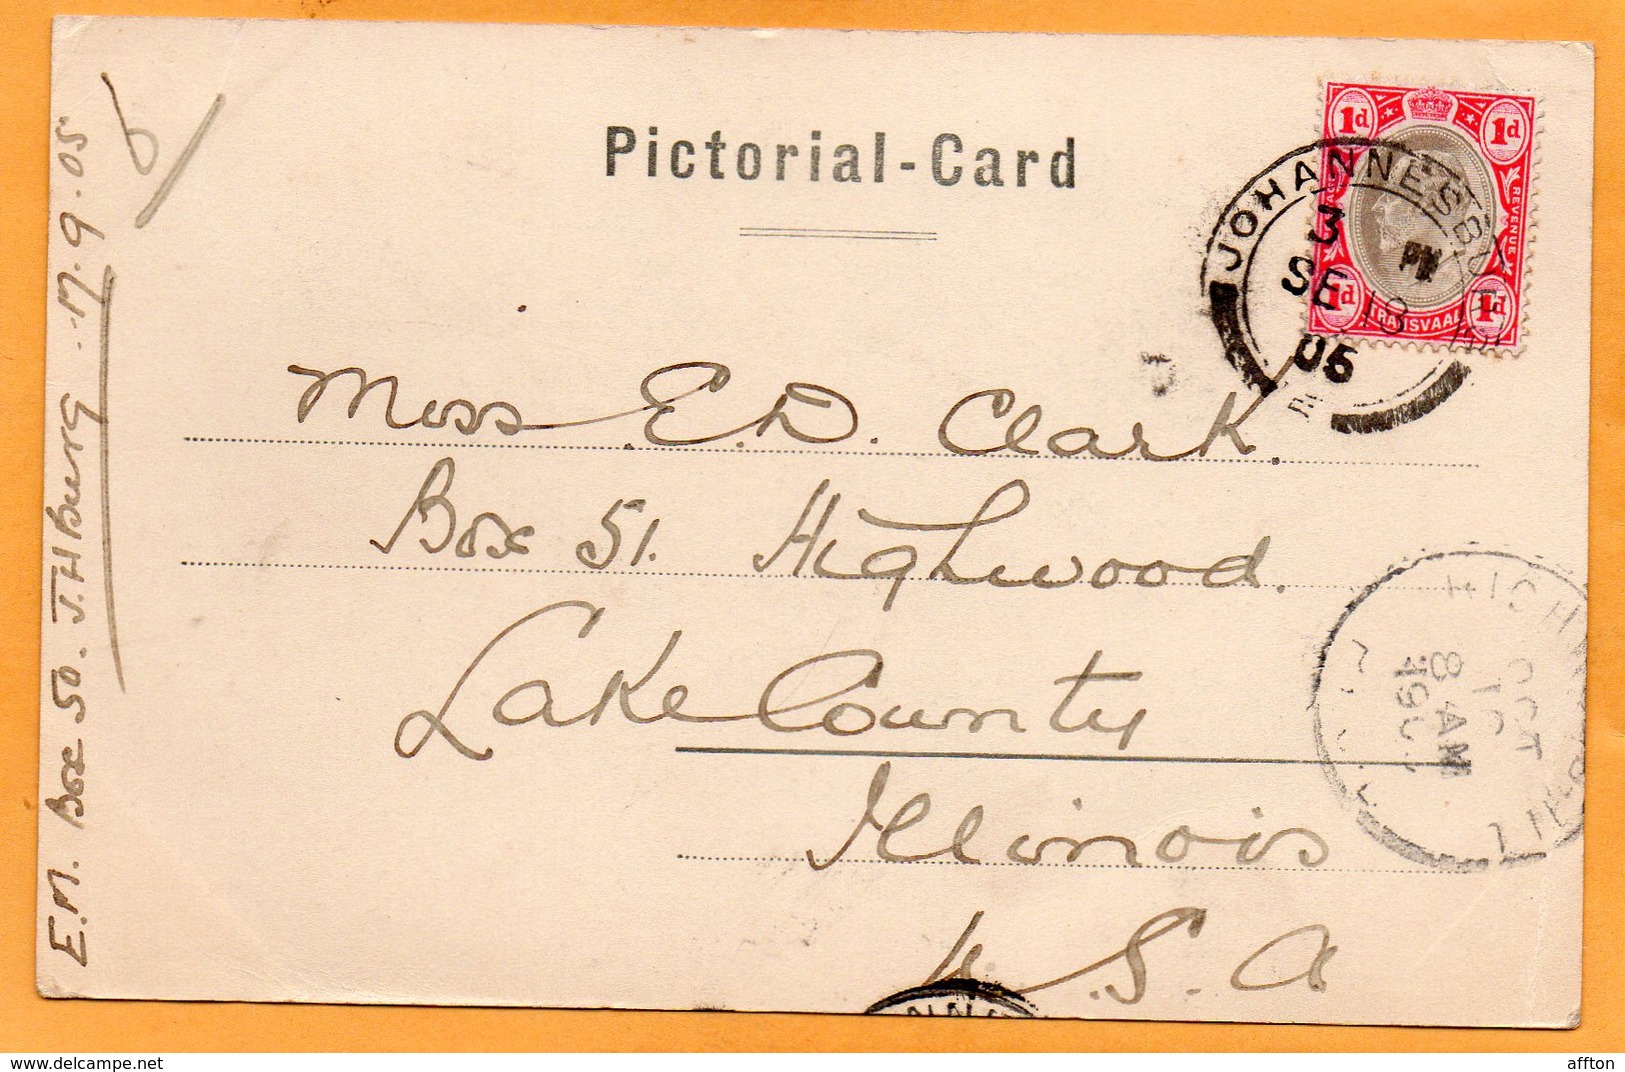 Pictorial-Card
1d 1d
REVENUE
1d 1d
TRANSVAAL
JOHANNESBURG
3 PM
SE 18
05
Miss E.D. Clark.
Box 51. Highwood.
Lake County
Illinois
U.S.A
E.M. Box 50. J.HBurg. 17.9.05
HIGHWOOD
OCT
8 AM
ILL
affton